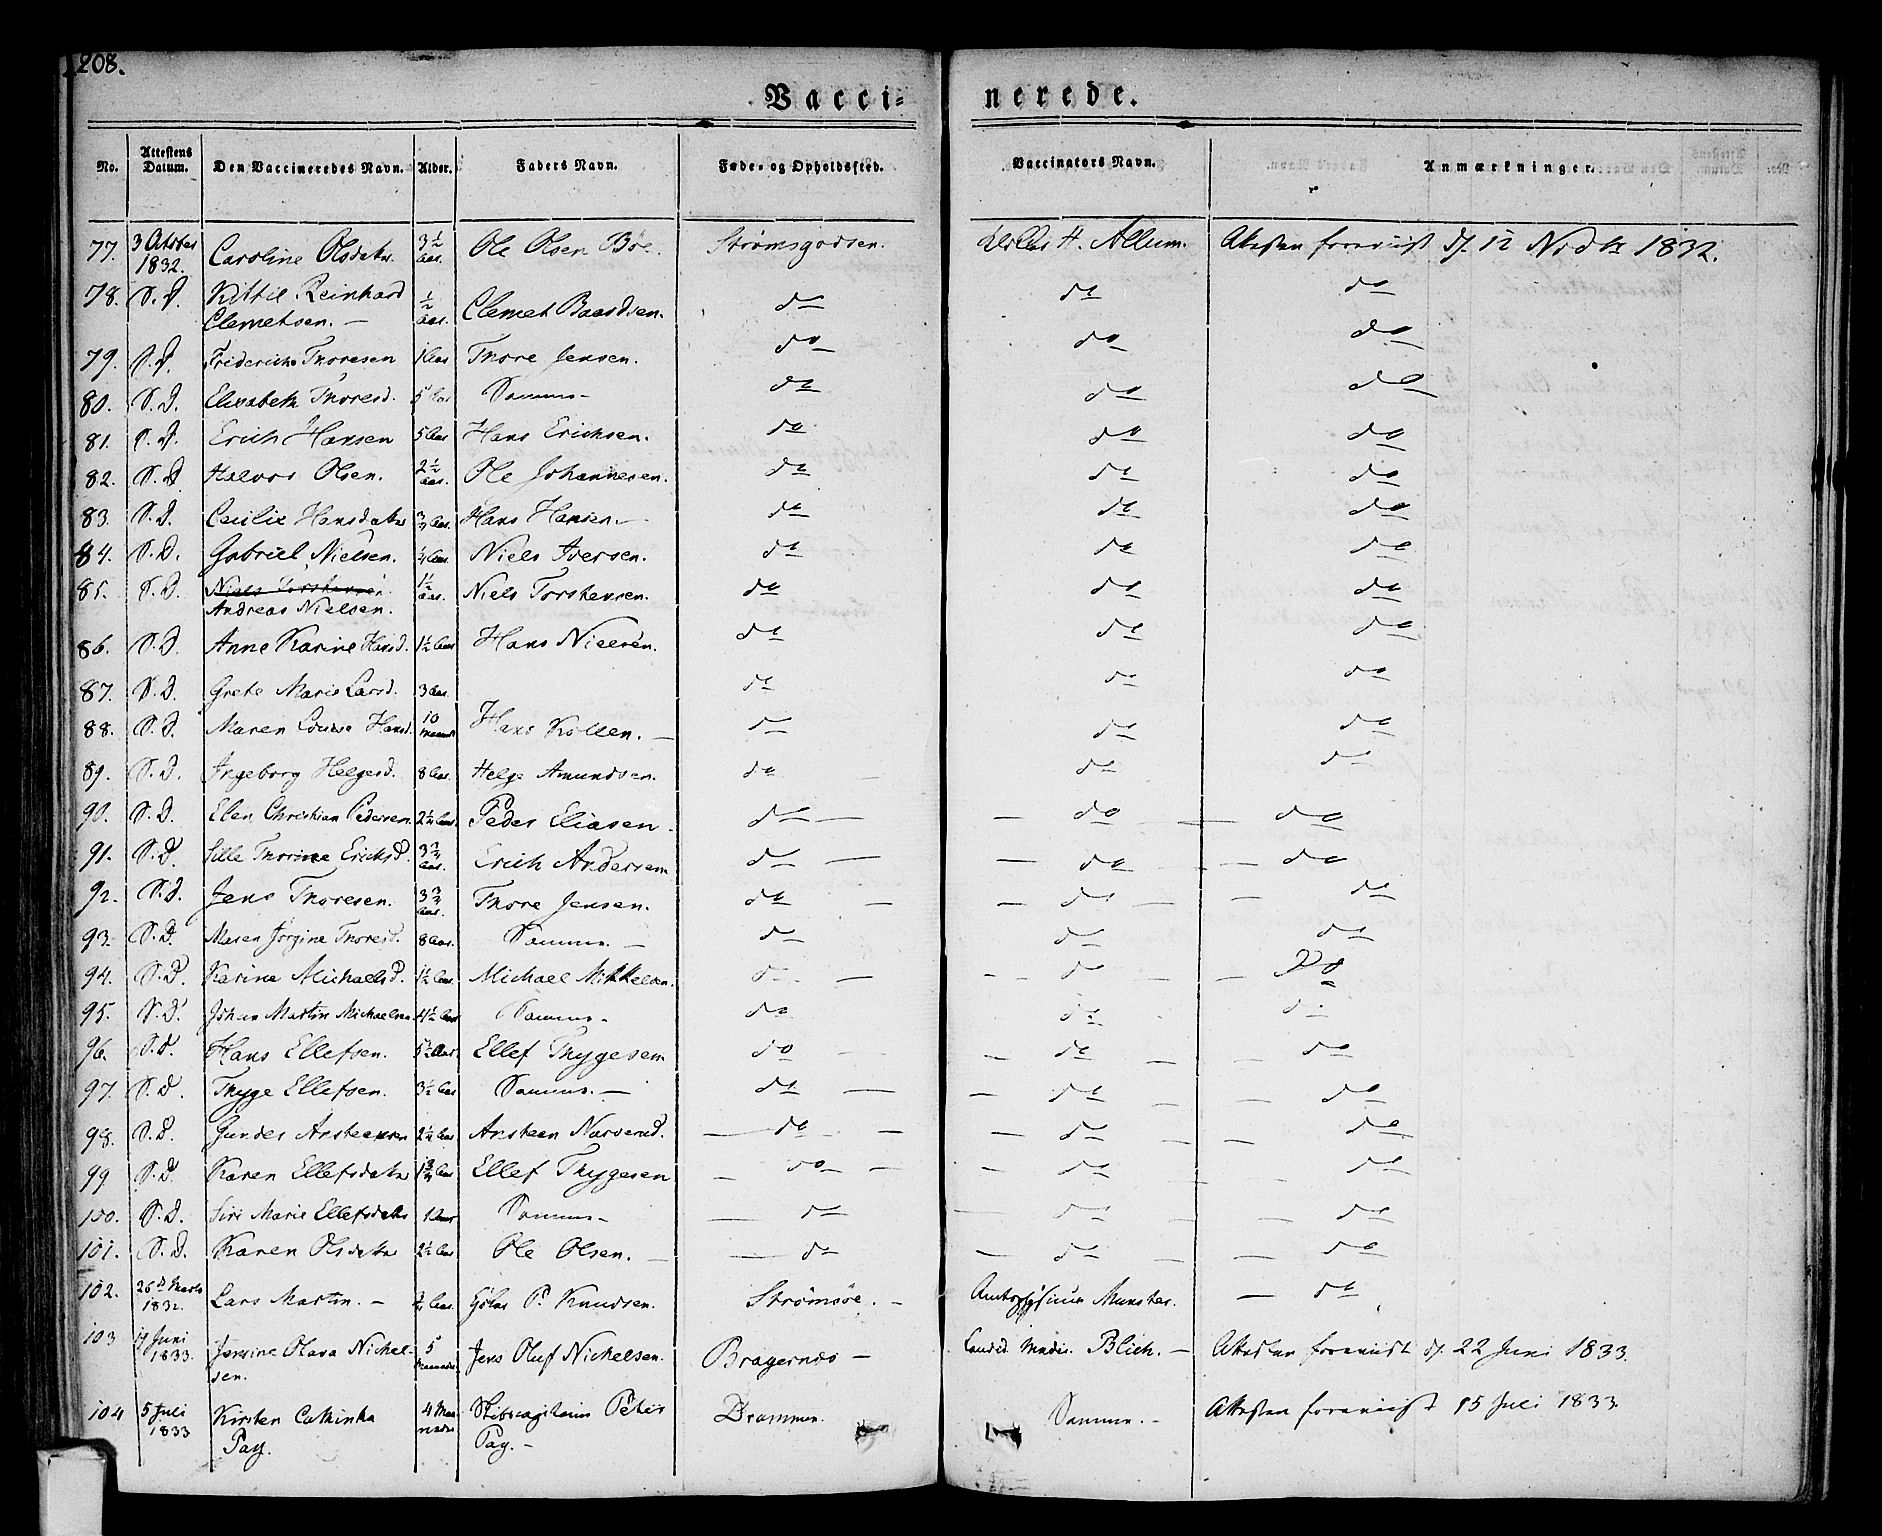 208.
Vacci-nerede.
No. Attestens Datum. Den Vaccineredes Navn. Alder. Faders Navn. Føde- og Opholdssted. Vaccinators Navn. Anmærkninger.
77. 3 Octbr 1832. Caroline Olsdatr. 3½ Aar. Ole Olsen Bøe. Strømsgodsen. H. Allum. Attesten foreviist d. 12 1832.
78. S. D. Kittil Reinhard Clemetsen. — ½ Aar. Clemet Baardsen. do do do
79. S. D. Friderich Thoresen 1 Aar Thore Jensen. do do do
80. S. D. Elisabeth Thoresd. 5 Aar Samme — do do do
81. S. D. Erich Hansen 5 Aar Hans Erichsen. do do do
82. S. D. Halvor Olsen. 2½ Aar. Ole Johannesen. do do do
83. S. D. Cecilie Hansdatr ¾ Aar. Hans Hansen. — do do do
84. S. D. Gabriel Nielsen. ¼ Aar. Niels Iversen. do do do
85. S. D. Niels Torstensen Andreas Nielsen. 1½ Aar. Niels Torstensen. do do do
86. S. D. Anne Karine Hansd. 1½ Aar Hans Nielsen. do do do
87. S. D. Grete Marie Larsd. 3 Aar. do do do
88. S. D. Maren Louise Hansd. 10 Maaned Hans Kollen. — do do do
89. S. D. Ingeborg Helgesd. 8 Aar. Helge Amundsen. do — do do
90. S. D. Elen Christian Pedersen 2¼ Aar. Peder Eliasen. do — — do — do
91. S. D. Sille Thorine Ericksd. 3¾ Aar. Erich Andersen do — — do — do
92. S. D. Jens Thoresen. 3¾ Aar. Thore Jensen. do — — do — — do
93. S. D. Maren Jørgine Thoresd. 8 Aar. Samme. — do do do
94. S. D. Karine Michaelsd. 1½ Aar. Michael Mikkelsen. do — — do — Do
95. S. D. Johan Martin Michaelsen 4½ Aar Samme — do do do
96. S. D. Hans Ellefsen. 5½ Aar. Ellef Thygesen do — — do — — do
97. S. D. Thyge Ellefsen. 3½ Aar Samme. — do — — do — — do
98. S. D. Gunder Ansteensen 2¼ Aar Ansteen Narverud. — do — — do — — do
99 S. D. Karen Ellefsdatr 1¾ Aar Ellef Thygesen — do — — do do
100. S. D. Siri Marie Ellefsdatr 1 Aar Samme — — do — do — do
101. S. D. Karen Olsdatr 2½ Aar Ole Olsen. — — do — do — do
102. 26d Marts 1832. Lars Martin. — ¾ Aar. P. Knudsen. Strømsøe. — Munster. — do
103 Juni 1833. Jensine Olava Nickelsen. 5 Maaneder Jens Oluf Nickelsen. Bragernæs — Candid. Medic. Blich. — Attesten foreviist d. 22 Juni 1833.
104 5 Juli 1833 Kirsten Cathinka Pay. 4 Maaneder Skibscapitain Peter Pay. — Drammen. Samme. — Attesten foreviist 15 Juli 1833.